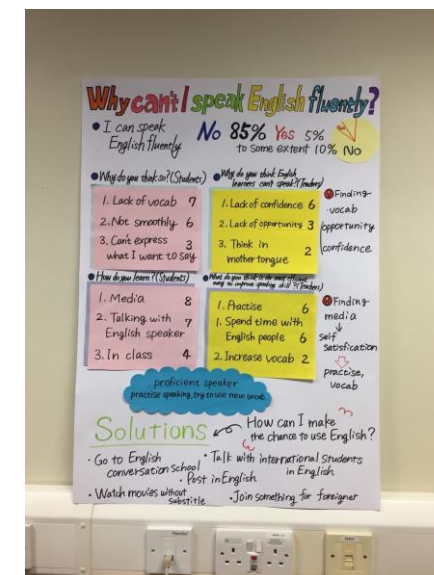 Why can't I speak English fluently?
• I can speak English fluently No 85% Yes 5%
to some extent 10% No
• Why do you think so? (Students)
1. Lack of vocab 7
2. Not smoothly 6
3. Can't express what I want to say 3
• Why do you think English learners can't speak? (Teachers)
1. Lack of confidence 6
2. Lack of opportunity 3
3. Think in mother tongue 2
Finding
vocab
opportunity
confidence
• How do you learn? (Students)
1. Media 8
2. Talking with English speaker 7
3. In class 4
What do you think is the most efficient way to improve speaking skill? (Teachers)
1. Practise 6
1. Spend time with English people 6
2. Increase vocab 2
Finding
media
↓
self
satisfication
⇩
practise,
vocab
proficient speaker
practise speaking, try to use new vocab
Solutions
How can I make
the chance to use English?
• Go to English
conversation school
• Talk with international students
in English
• Post in English
• Watch movies without
substitle
• Join something for foreigner